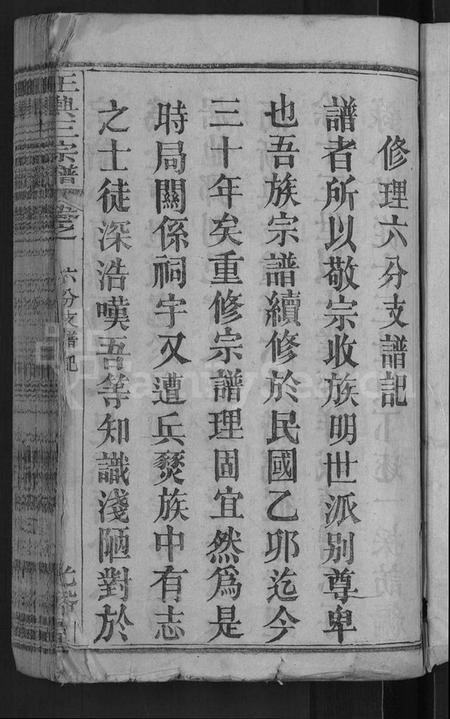 修理六分支譜記
譜者所以敬宗收族明世派别尊卑
也吾族宗譜續修於民國乙邜迄今
三十年矣重修宗譜理固宜然爲是
時局關係祠宇又遭兵燹族中有志
之士徒深浩嘆吾等知識淺陋對於
宗譜
六分支譜記